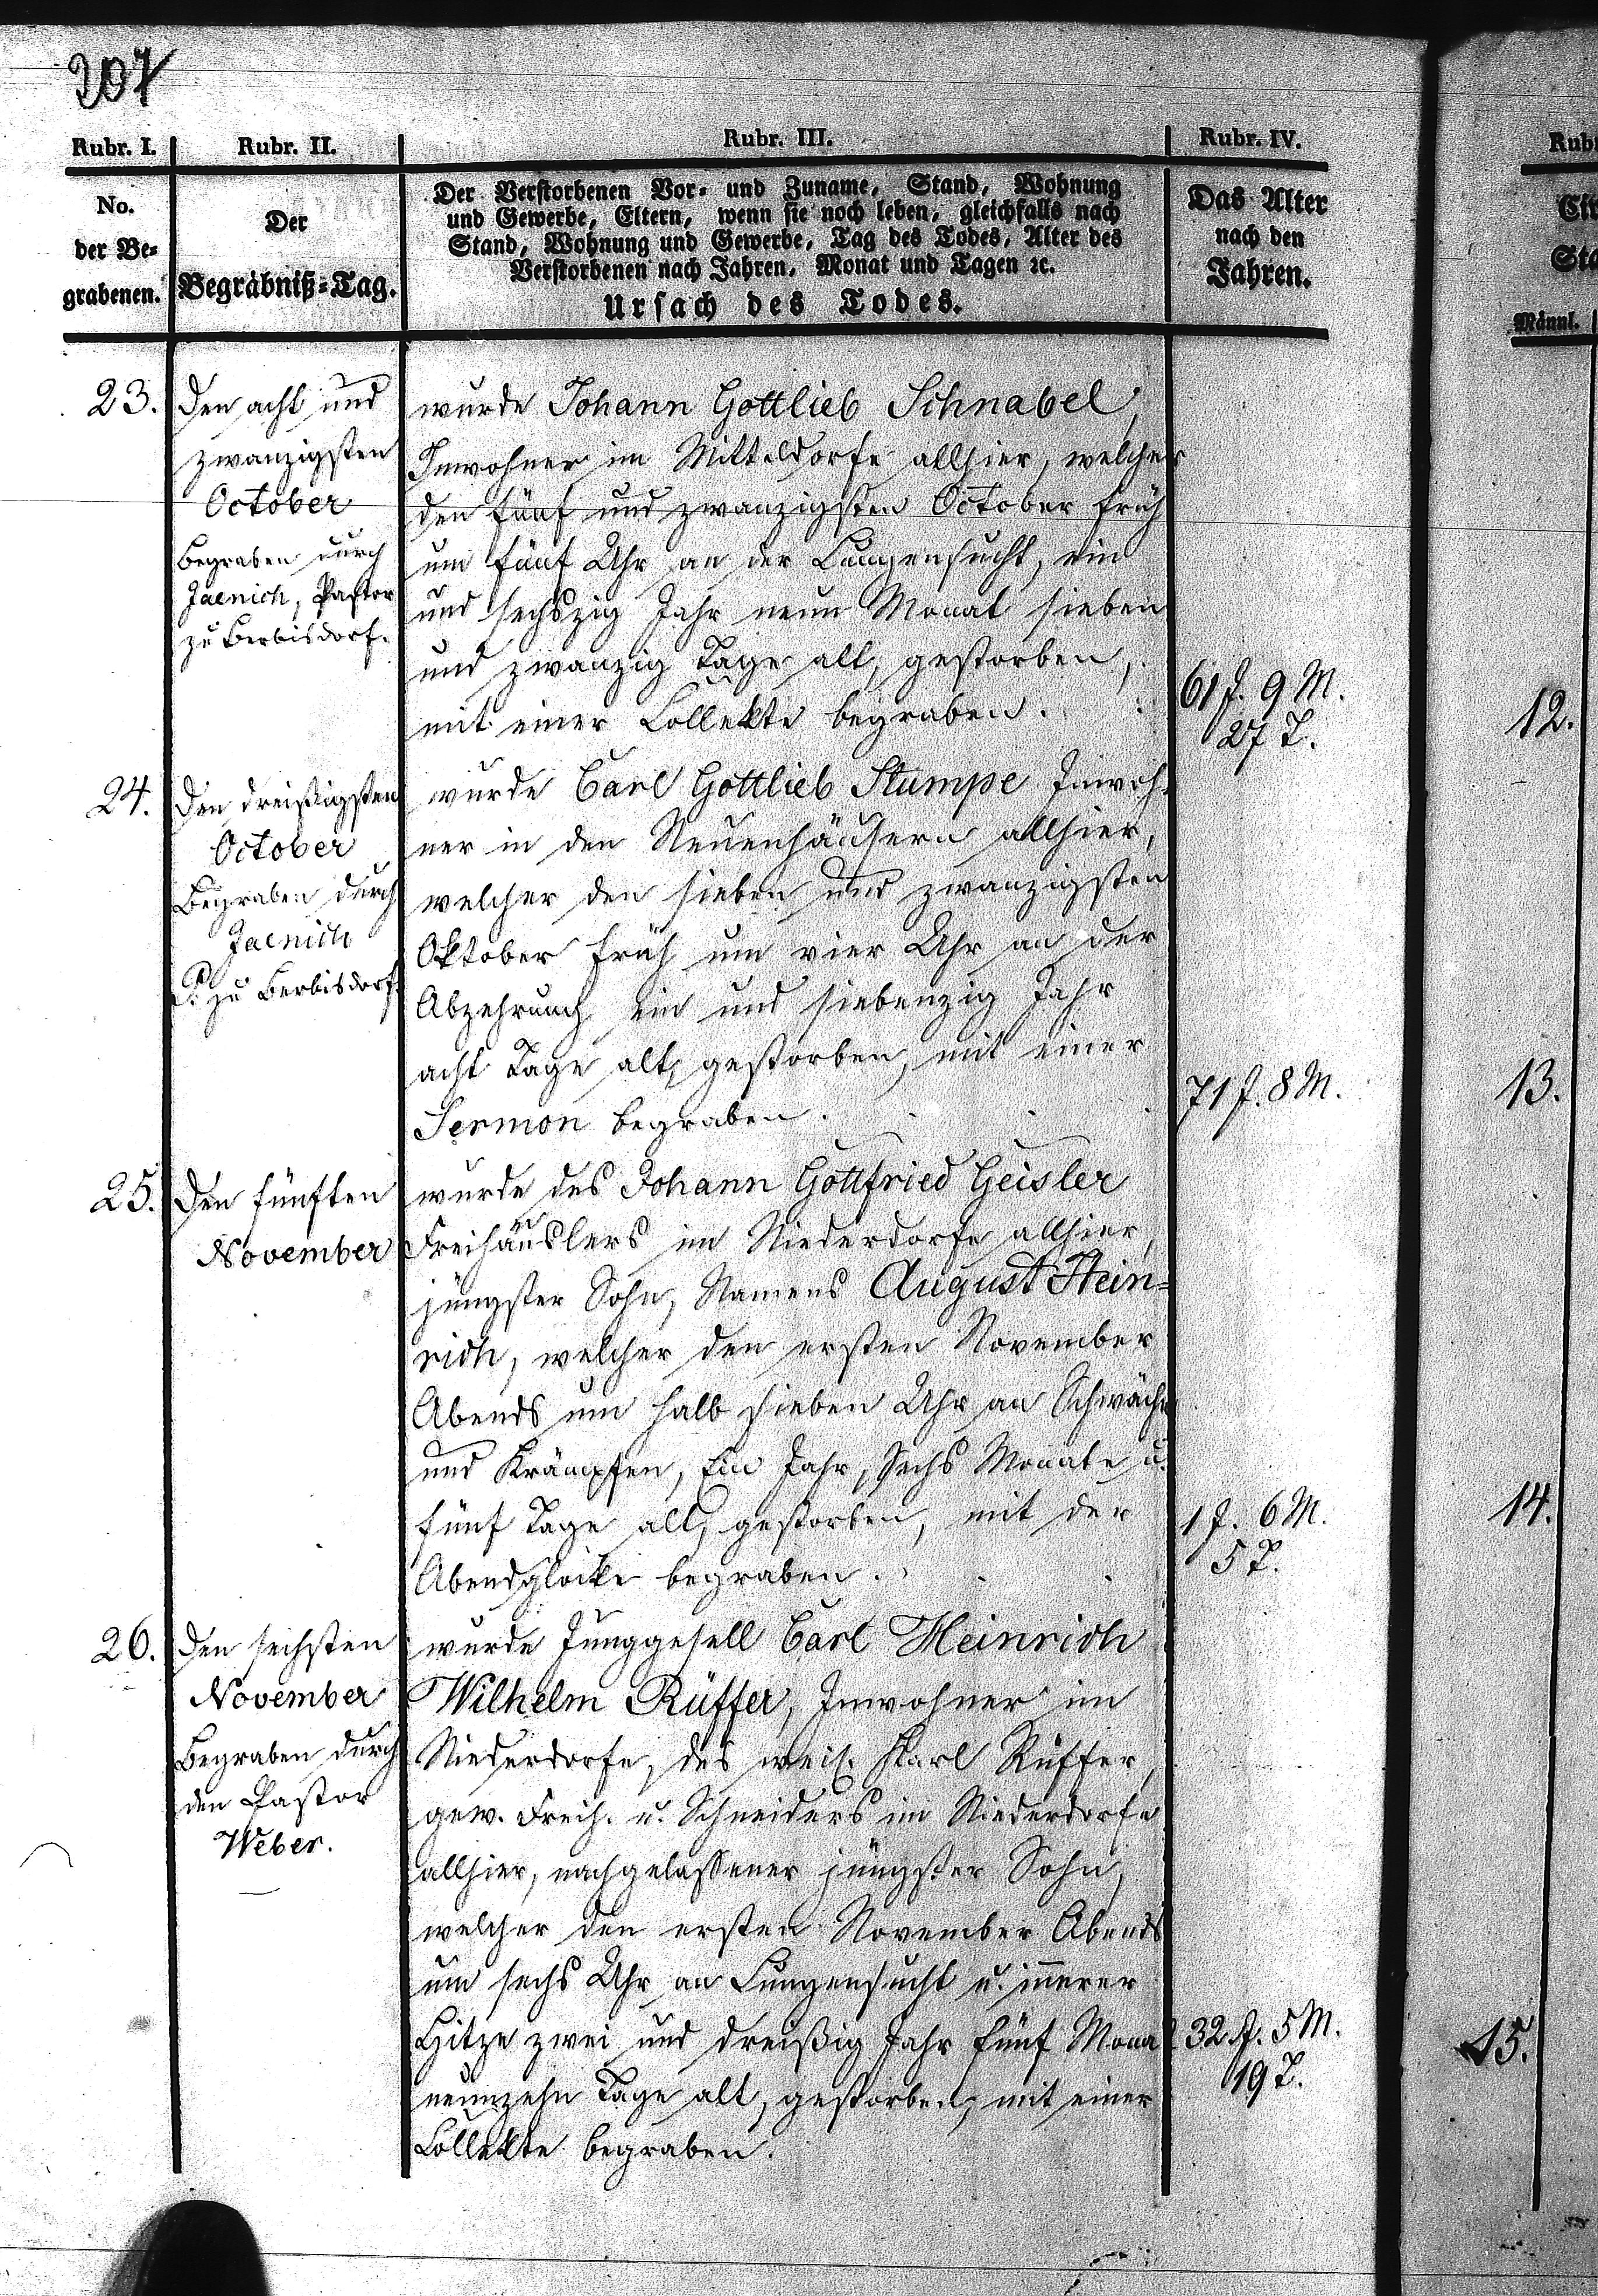 207
Rubr. I.
Rubr. II.
Rubr. III.
Rubr. IV.
No.
der Be-
grabenen.
Der
Begräbniß-Tag.
Der Verstorbenen Vor- und Zuname, Stand, Wohnung
und Gewerbe, Eltern, wenn sie noch leben, gleichfalls nach
Stand, Wohnung und Gewerbe, Tag des Todes, Alter des
Verstorbenen nach Jahren, Monat und Tagen ꝛc.
Ursach des Todes.
Das Alter
nach den
Jahren.
23.
den acht und
zwanzigsten
October
begraben durch
Jaenich, Pastor
zu Berbisdorf.
wurde Johann Gottlieb Schnabel,
Inwohner im Mitteldorfe allhier, welcher
den fünf und zwanzigsten October früh
um fünf Uhr an der Lungensucht, ein
und sechszig Jahr neun Monat sieben
und zwanzig Tage alt, gestorben,
mit einer Collekte begraben.
61 J. 9 M.
27 T.
24.
den dreißigsten
October
Begraben durch
Jaenich
P. zu Berbisdorf.
wurde Carl Gottlieb Stumpe Inwoh-
ner in den Neuenhäusern allhier,
welcher den sieben und zwanzigsten
Oktober früh um vier Uhr an der
Abzehrung ein und siebenzig Jahr
acht Tage alt, gestorben, mit einer
Sermon begraben.
71 J. 8 M.
25.
den fünften
November
wurde des Johann Gottfried Geisler
Freihäuslers im Niederdorfe allhier,
jüngster Sohn, Namens August Hein-
rich, welcher den ersten November
Abends um halb sieben Uhr an Schwäche
und Krämpfen, Ein Jahr, sechs Monate u.
fünf Tage alt, gestorben, mit der
Abendglocke begraben.
1 J. 6 M.
5 T.
26.
den sechsten
November
Begraben durch
den Pastor
Weber.
wurde Junggesell Carl Heinrich
Wilhelm Rüffer, Inwohner im
Niederdorfe, des weil. Karl Rüffer,
gew. Freih. u. Schneiders im Niederdorfe
allhier, nachgelassener jüngster Sohn,
welcher den ersten November Abends
um sechs Uhr an Lungensucht u. innerer
Hitze zwei und dreißig Jahr fünf Monat
neunzehn Tage alt, gestorben, mit einer
Collekte begraben.
32 J. 5 M.
19 T.
Männl.
12.
13.
14.
15.